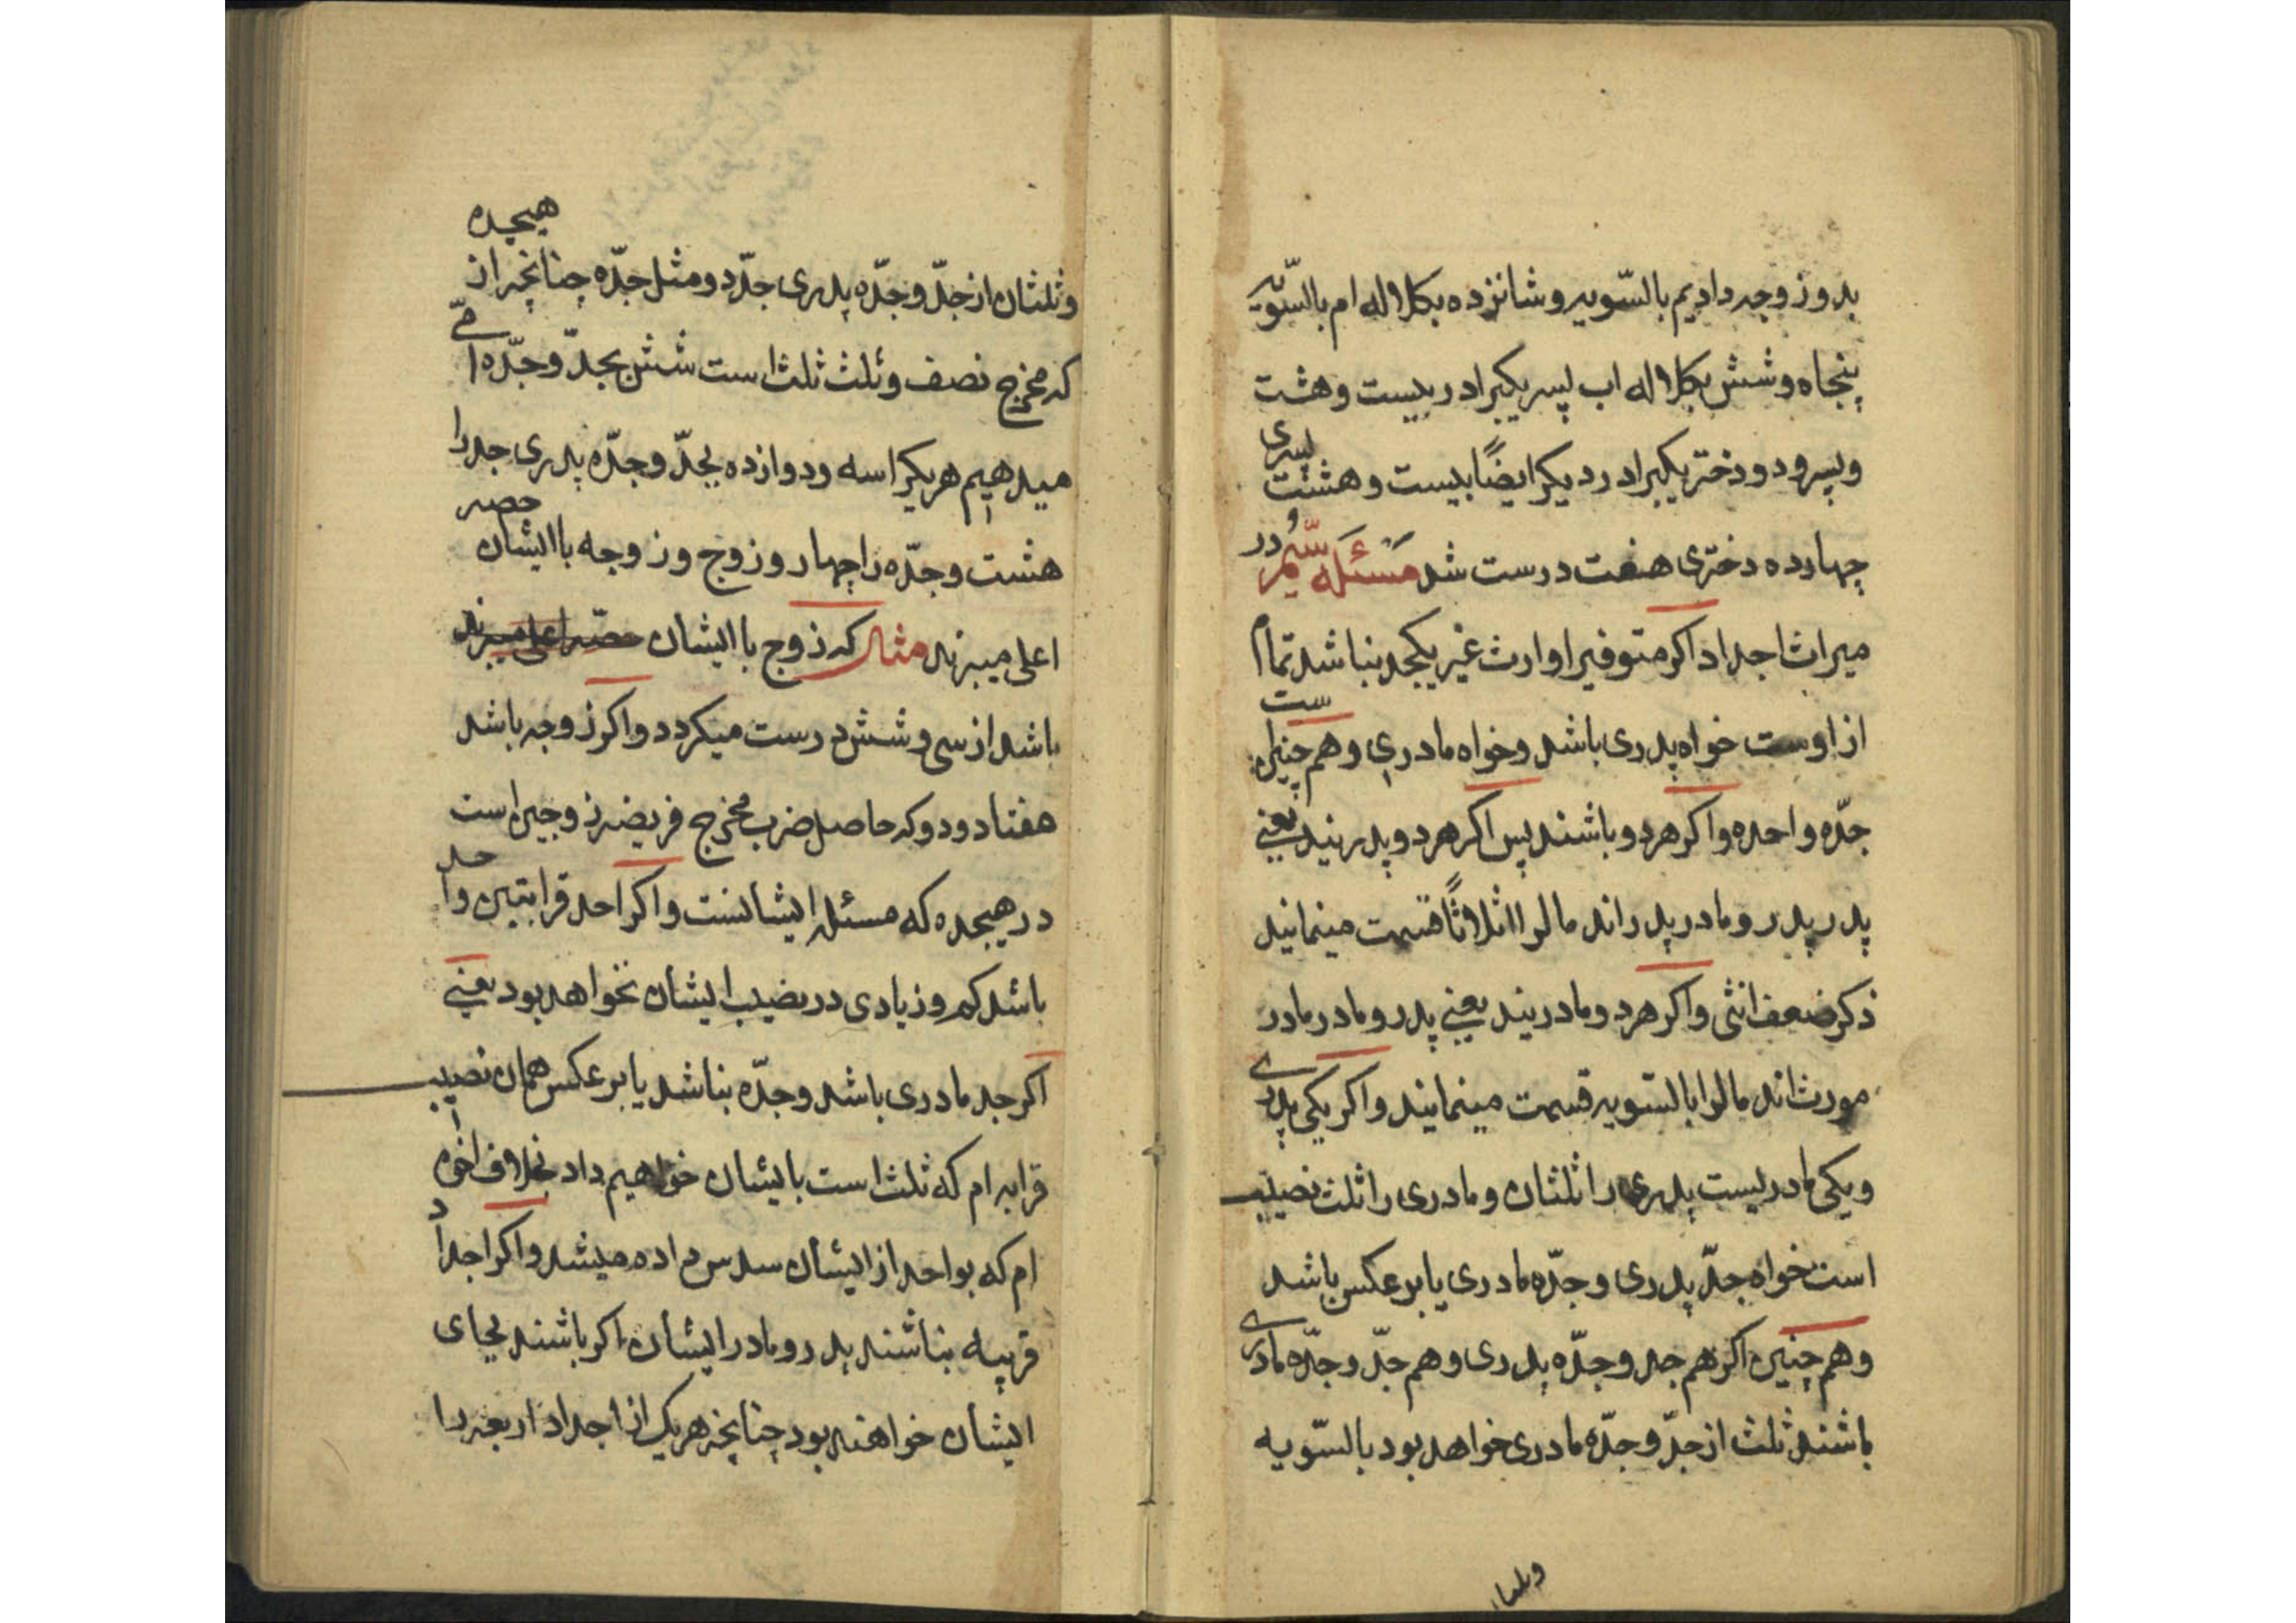 بدو زوجه دادیم بالسّویه و شانزده بکلاله ام بالسّویّه
پنجاه و شش بکلاله اب پسر یکبرادر بیست و هشت
و پسر و دو دختر یکبرادر دیکر ایضًا بیست و هشت پسری
چهارده دختری هفت درست شد مَسئَله سِیُّم در
میراث اجداد اکر متوفیرا وارث غیر یکجد نباشد تمام
از اوست خواه پدری باشد و خواه مادری و هم چنین
جدّه واحده و اکر هر دو باشند پس اکر هر دو پدریند یعنی
پدر پدر و مادر پدر اند مالرا اثلاثًا قسمت مینمایند
ذکر ضعف انثی و اکر هر دو مادریند یعنی پدر و مادر مادر
مورث اند مالرا بالسّویه قسمت مینمایند و اکر یکی پدری
و یکی مادریست پدری را ثلثان و مادری را ثلث نصیب
است خواه جدّ پدری و جدّه مادری یا بر عکس باشد
و هم چنین اکر هم جد و جدّه پدری و هم جدّ و جدّه مادری
باشند ثلث از جدّ و جدّه مادری خواهد بود بالسّویه
و ثلثان
و ثلثان از جدّ و جدّه پدری جدّ دو مثل جدّه چنانچه از هیجده
که مخرج نصف و ثلث ثلث است شش بجدّ و جدّه امّی
میدهیم هر یکرا سه و دوازده بجدّ و جدّه پدری جد را
هشت و جدّه را چهار و زوج و زوجه با ایشان حصه
اعلی میبرند مثال که زوج با ایشان حصّه اعلی میبرند
باشد از سی و شش درست میکردد و اکر زوجه باشد
هفتاد و دو که حاصل ضرب مخرج فریضه زوجیه است
در هیجده که مسئله ایشانست و اکر احد قرابتین واحد
باشد کم و زیادی در نصیب ایشان نخواهد بود یعنی
اکر جد مادری باشد و جدّه نباشد یا بر عکس همان نصیب
قرابه ام که ثلث است بایشان خواهیم داد بخلاف اخوه
ام که بواحد از ایشان سدس داده میشد و اکر اجداد
قریبه نباشند پدر و مادر ایشان اکر باشند بجای
ایشان خواهند بود چنانچه هر یک از اجداد اربعه را